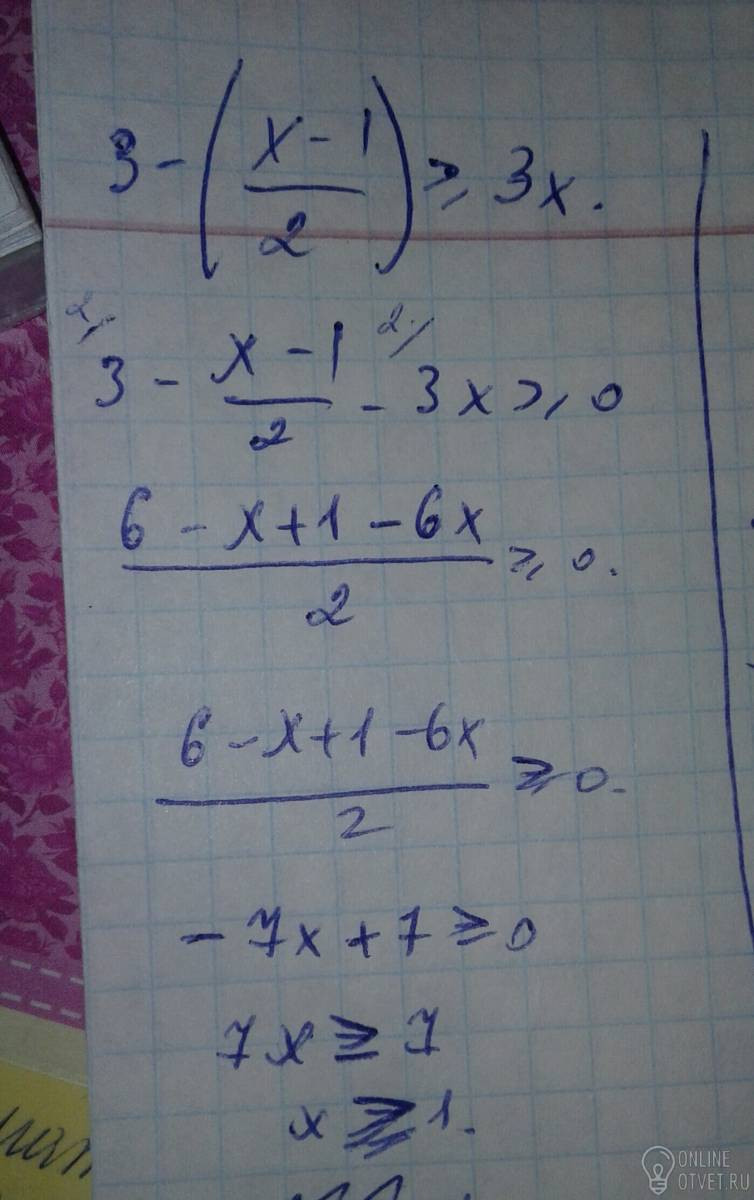 3 - ( (x - 1) / 2 ) ≥ 3x.
2/ 3 - (x - 1) / 2 - 2/ 3x ≥ 0
(6 - x + 1 - 6x) / 2 ≥ 0.
(6 - x + 1 - 6x) / 2 ≥ 0.
- 7x + 7 ≥ 0
7x ≥ 7
x ≥ 1.
ONLINE
OTVET.RU